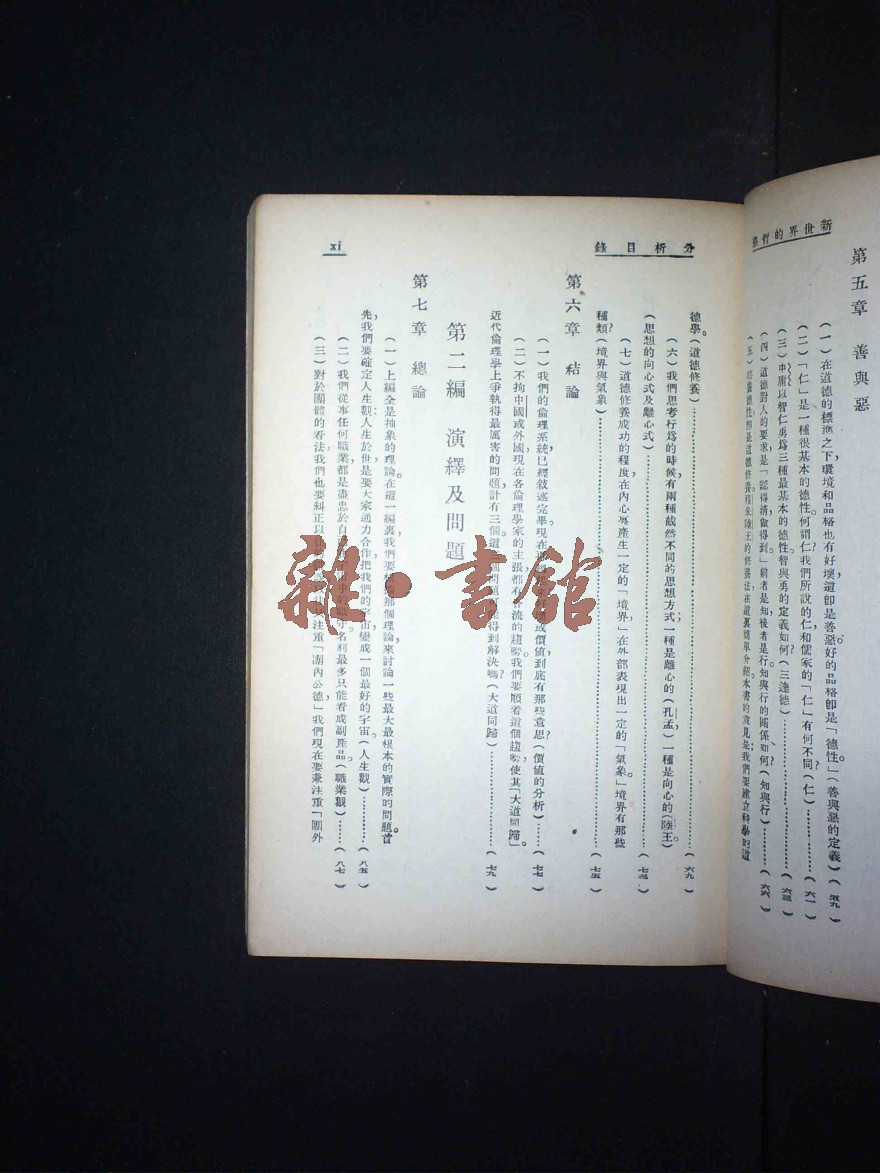 新世界的哲學
第五章 善與惡
(一)在道德的標準之下,環境和品格也有好壞,這卽是善惡。好的品格卽是「德性」(善與惡的定義)(五九)
(二)「仁」是一種很基本的德性。何謂仁?我們所說的仁和儒家的「仁」有何不同?(仁)(六一)
(三)中庸以智仁勇爲三種最基本的德性。智與勇的定義如何?(三達德)(六三)
(四)道德對人的要求是「認得清,做得到」。前者是知,後者是行。知與行的關係如何?(知與行)(六六)
(五)培養德性卽是道德修養。程朱陸王的修養法,在這裏簡單介紹。本書的意見是:我們要建立科學的道
分析目錄
xi
德學。(道德修養)(六九)
(六)我們思考行爲的時候,有兩種截然不同的思想方式:一種是離心的(孔孟),一種是向心的(陸王)。
(思想的向心式及離心式)(七三)
(七)道德修養成功的程度,在內心裏產生一定的「境界」,在外部表現出一定的「氣象」。境界有那些
種類?(境界與氣象)(七五)
第六章 結論
(一)我們的倫理系統,已經敘述完畢。現在或價值到底有那些意思?(價值的分析)(七七)
(二)不拘中國或外國,現在各倫理學家的主張,都有合流的趨勢。我們要順着這個趨勢,使其「大道同歸」。
近代倫理學上爭執得最厲害的問題,計有三個。這個問題可能得到解決嗎?(大道同歸)(七九)
第二編 演繹及問題
第七章 總論
(一)上編全是抽象的理論。在這一編裏,我們要那個理論,來討論一些最大最根本的實際的問題。首
先,我們要確定人生觀:人生於世,是要大家通力合作,把我們的宇宙變成一個最好的宇宙。(人生觀)(八五)
(二)我們從事任何職業,都是盡忠於自中的名利最多只能看成副產品。(職業觀)(八七)
(三)對於團體的看法,我們也要糾正以注重「團內公德」,我們現在要兼注重「團外
雜·書館